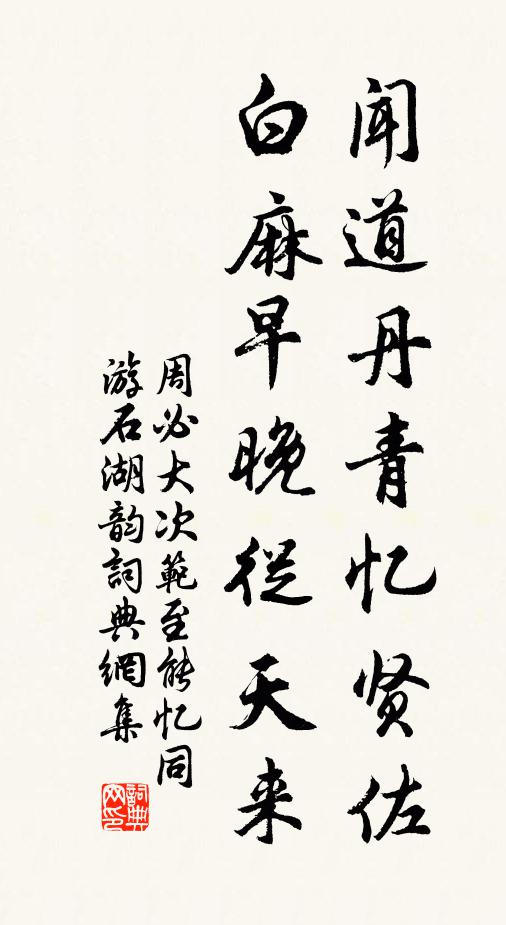 闻道丹青忆贤佐
白麻早晚從天来
周必大次範至能忆同
游石湖韵詞典網集
詞典网印